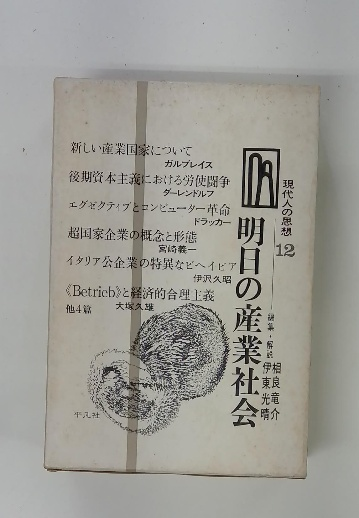 現代人の思想
12
明日の産業社会
編集・解説
相良竜介
伊東光晴
新しい産業国家について
ガルブレイス
後期資本主義における労使闘争
ダーレンドルフ
エグゼクティブとコンピューター革命
ドラッカー
超国家企業の概念と形態
宮崎義一
イタリア公企業の特異なビヘイビア
伊沢久昭
《Betrieb》と経済的合理主義
大塚久雄
他4篇
平凡社